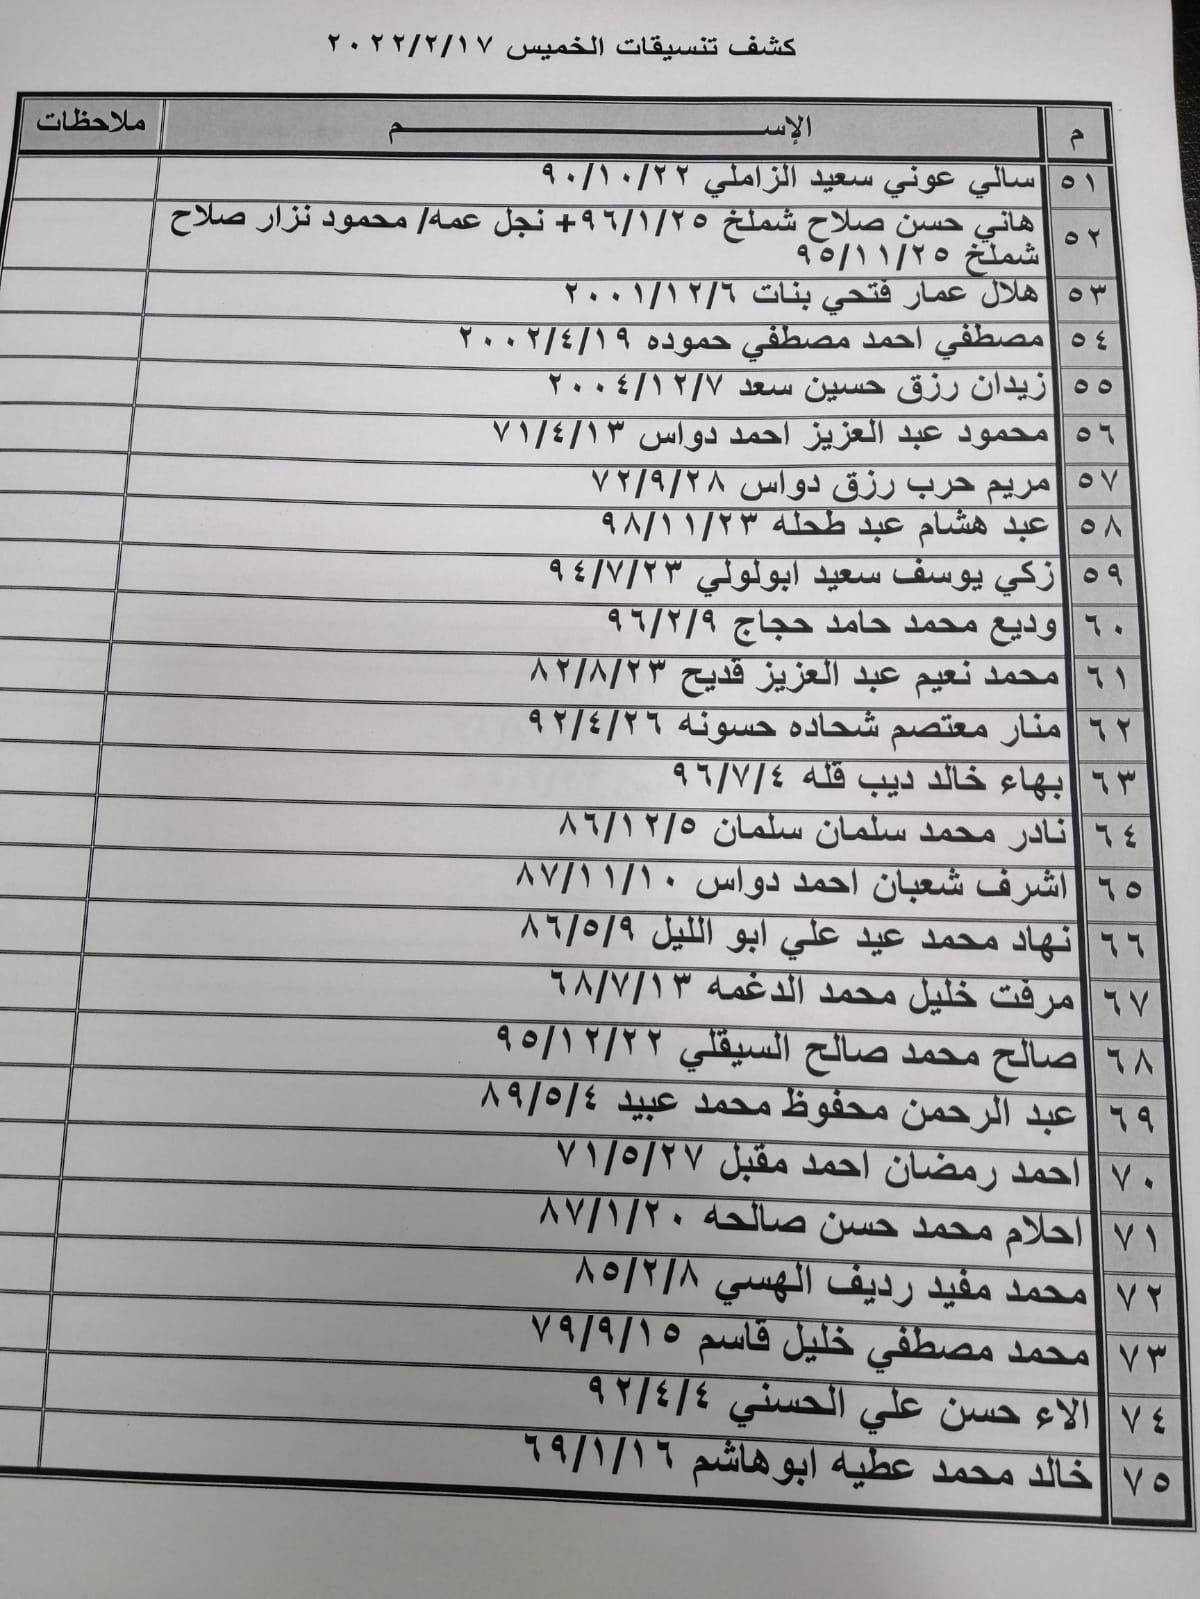 كشف تنسيقات الخميس ٢٠٢٢/٢/١٧
م الإســـــــــم ملاحظات
٥١ سالي عوني سعيد الزاملي ٩٠/١٠/٢٢
٥٢ هاني حسن صلاح شملخ ٩٦/١/٢٥+ نجل عمه/ محمود نزار صلاح
شملخ ٩٥/١١/٢٥
٥٣ هلال عمار فتحي بنات ٢٠٠١/١٢/٦
٥٤ مصطفي احمد مصطفي حموده ٢٠٠٢/٤/١٩
٥٥ زيدان رزق حسين سعد ٢٠٠٤/١٢/٧
٥٦ محمود عبد العزيز احمد دواس ٧١/٤/١٣
٥٧ مريم حرب رزق دواس ٧٢/٩/٢٨
٥٨ عبد هشام عبد طحله ٩٨/١١/٢٣
٥٩ زكي يوسف سعيد ابولولي ٩٤/٧/٢٣
٦٠ وديع محمد حامد حجاج ٩٦/٢/٩
٦١ محمد نعيم عبد العزيز قديح ٨٢/٨/٢٣
٦٢ منار معتصم شحاده حسونه ٩٢/٤/٢٦
٦٣ بهاء خالد ديب قله ٩٦/٧/٤
٦٤ نادر محمد سلمان سلمان ٨٦/١٢/٥
٦٥ اشرف شعبان احمد دواس ٨٧/١١/١٠
٦٦ نهاد محمد عيد علي ابو الليل ٨٦/٥/٩
٦٧ مرفت خليل محمد الدغمه ٦٨/٧/١٣
٦٨ صالح محمد صالح السيقلي ٩٥/١٢/٢٢
٦٩ عبد الرحمن محفوظ محمد عبيد ٨٩/٥/٤
٧٠ احمد رمضان احمد مقبل ٧١/٥/٢٧
٧١ احلام محمد حسن صالحه ٨٧/١/٢٠
٧٢ محمد مفيد رديف الهسي ٨٥/٢/٨
٧٣ محمد مصطفي خليل قاسم ٧٩/٩/١٥
٧٤ الاء حسن علي الحسني ٩٢/٤/٤
٧٥ خالد محمد عطيه ابوهاشم ٦٩/١/١٦